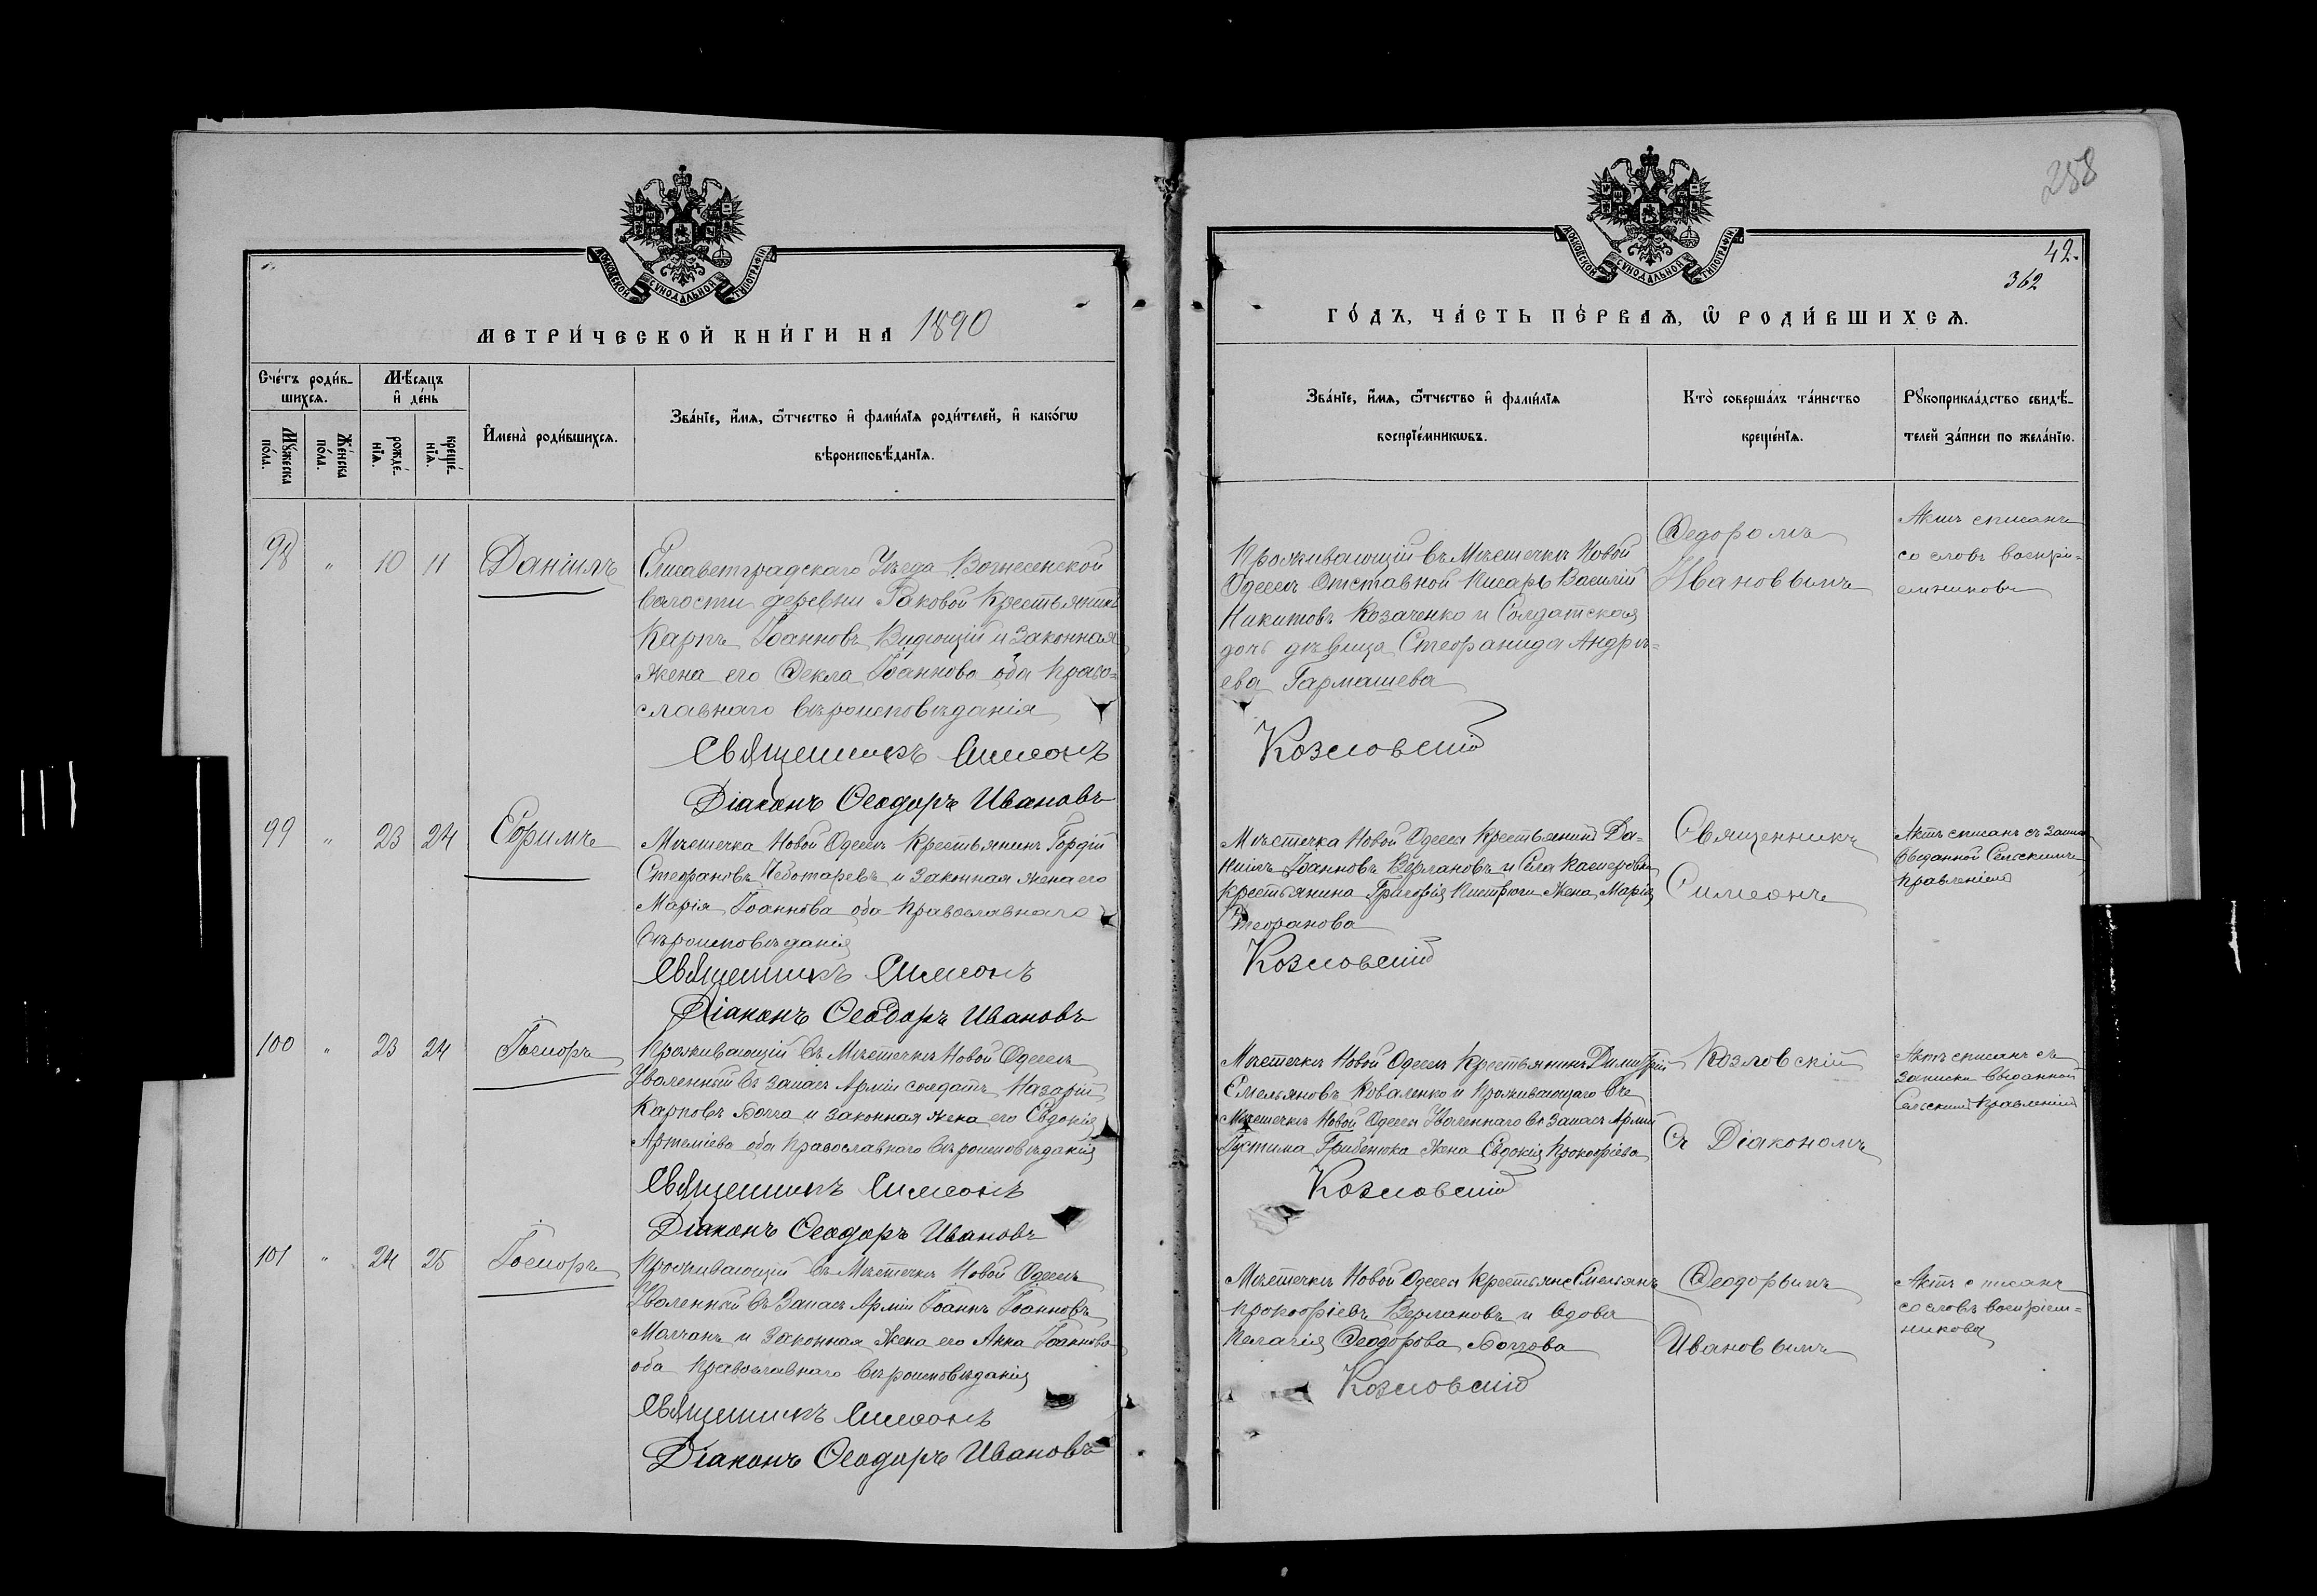 МОСКОВСКОЙ СѴНОДАЛЬНОЙ ТИПОГРАФІИ
МЕТРИ́ЧЕСКОЙ КНИ́ГИ НА 1890
Сче́тъ роди́в-
шихсѧ.
Мꙋжеска
по́ла.
Же́нска
по́ла.
Мѣ́сѧцъ
и҆ де́нь
рожде́-
нїѧ.
креще́-
нїѧ.
И҆мена̀ роди́вшихсѧ.
Зва́нїе, и҆́мѧ, ѻ҆́тчество и҆ фами́лїѧ роди́телей, и҆ како́гѡ
вѣроисповѣ́данїѧ.
98 " 10 11 Даніилъ
Елисаветградскаго Уѣзда Вознесенской
волости деревни Раковой Крестьянинъ
Карпъ Іоанновъ и Законная
жена его Ѳекла Іоаннова оба Право-
славнаго вѣроисповѣданія
Священникъ Симеонъ
Діаконъ Ѳеодоръ Ивановъ
99 " 23 24 Ефимъ
Мѣстечка Новой Одессы Крестьянинъ Гордій
Стефановъ Чеботаревъ и Законная жена его
Марія Іоаннова оба Православнаго
вѣроисповѣданія
Священникъ Симеонъ
Діаконъ Ѳеодоръ Ивановъ
100 " 23 24
Проживающій въ Мѣстечкѣ Новой Одессѣ
Уволенный въ Запасъ Арміи солдатъ Назарій
Карповъ и законная жена его Евдокія
Артеміева оба Православнаго вѣроисповѣданія
Священникъ Симеонъ
Діаконъ Ѳеодоръ Ивановъ
101 " 24 25
Проживающій въ Мѣстечкѣ Новой Одессѣ
Уволенный въ Запасъ Арміи Іоаннъ Іоанновъ
Молчанъ и Законная Жена его Анна Іоаннова
оба Православнаго вѣроисповѣданія
Священникъ Симеонъ
Діаконъ Ѳеодоръ Ивановъ
258
42.
362
МОСКОВСКОЙ СѴНОДАЛЬНОЙ ТИПОГРАФІИ
ГО́ДЪ, ЧА́СТЬ ПЕ́РВАѦ, Ѡ҆ РОДИ́ВШИХСѦ.
Зва́нїе, и҆́мѧ, ѻ҆́тчество и҆ фами́лїѧ
воспрїе́мникѡвъ.
Кто̀ соверша́лъ та́инство
креще́нїѧ.
Рꙋкоприкла́дство свидѣ́-
телей за́писи по жела́нїю.
Проживающій въ Мѣстечкѣ Новой
Одессѣ Отставной Писарь Василій
Никитовъ Козаченко и Солдатская
дочь дѣвица Стефанида Андрѣ-
ева Гармашева
Козловскій
Ѳедоромъ
Ивановымъ
Актъ списанъ
со словъ воспрі-
емниковъ
Мѣстечка Новой Одессы Крестьянинъ Да-
ніилъ Іоанновъ Верлановъ и Села
Крестьянина Григорія жена Марія
Стефанова
Козловскій
Священникъ
Симеонъ
Актъ списанъ съ
выданной Сельскимъ
Правленіемъ
Мѣстечка Новой Одессы Крестьянинъ Димитрій
Емельяновъ Коваленко и Проживающаго въ
Мѣстечкѣ Новой Одессы Уволеннаго въ Запасъ Арміи
Іустина Грибенюка Жена Евдокія Прокофіева
Козловскій
Козловскій
съ Діакономъ
Актъ списанъ съ
Записки выданной
Сельскимъ Правленіемъ
Мѣстечка Новой Одессы Крестьяне Емельянъ
Прокофіевъ Верлановъ и вдова
Пелагія Ѳеодорова
Козловскій
Ѳеодоромъ
Ивановымъ
Актъ списанъ
со словъ воспріем-
никовъ